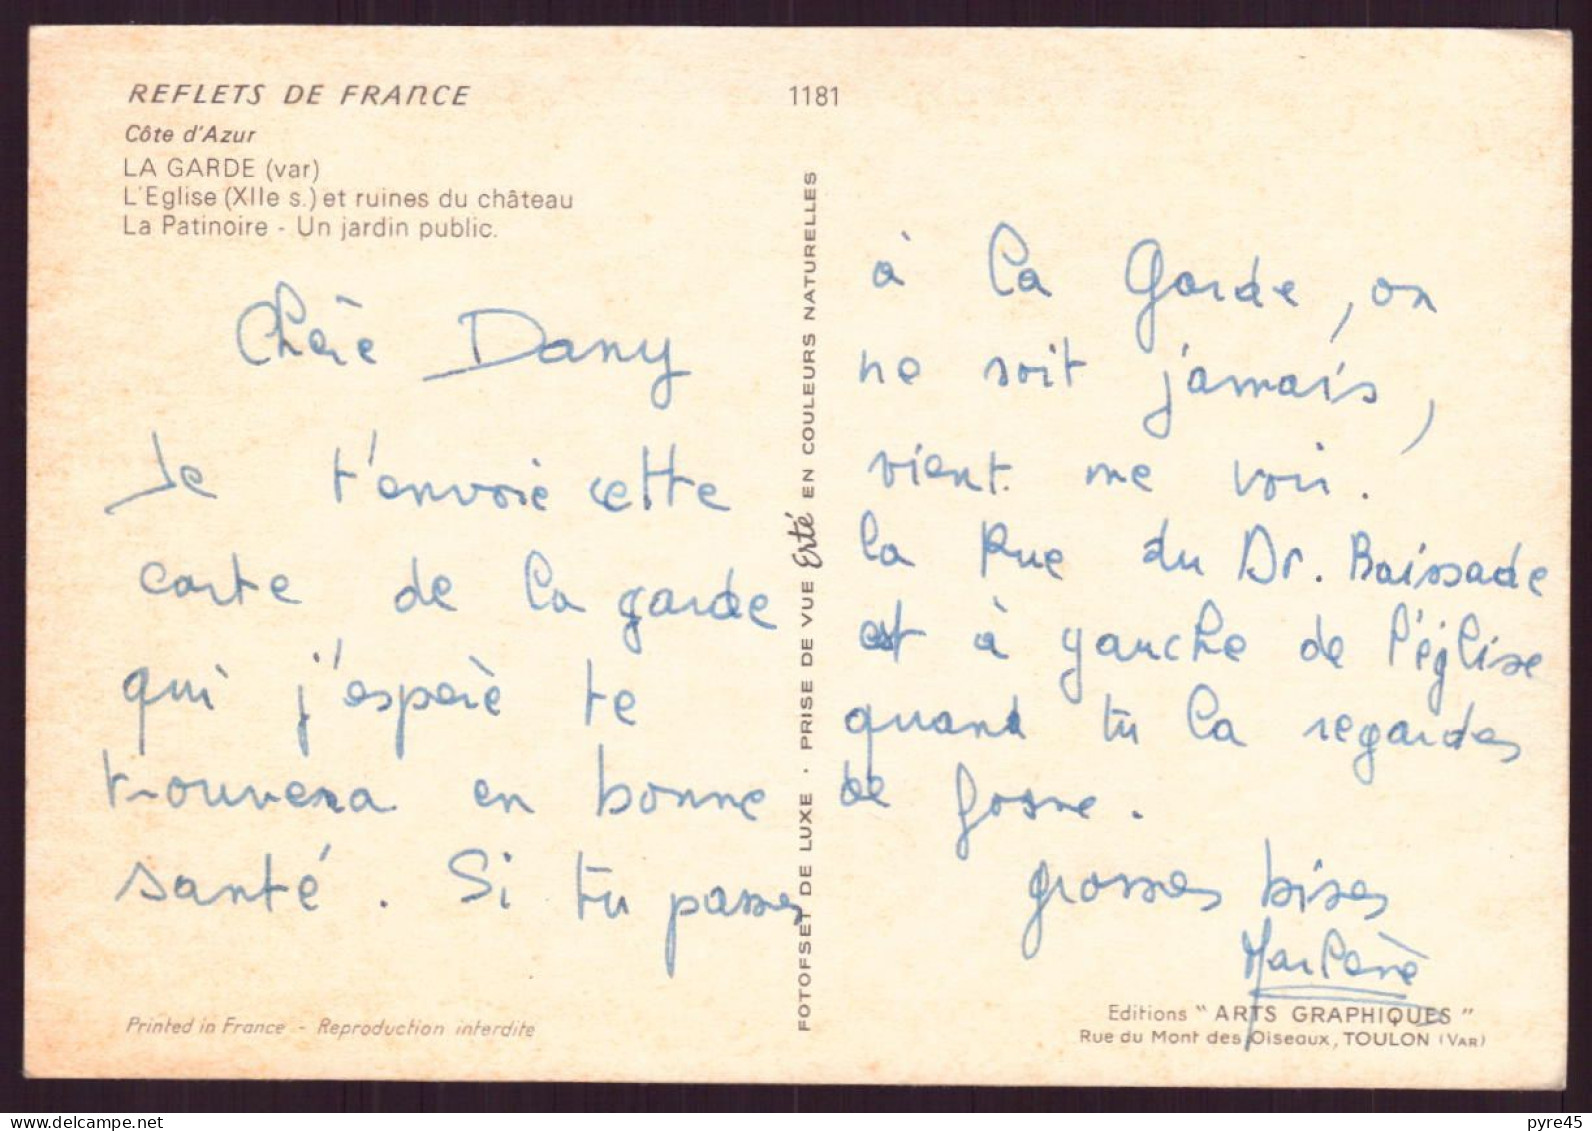 REFLETS DE FRANCE
Côte d'Azur
LA GARDE (var)
L'Eglise (XIIe s.) et ruines du château
La Patinoire - Un jardin public.
1181
Chère Dany
Je t'envoie cette
carte de la garde
qui j'espère te
trouvera en bonne
santé. Si tu passes
Printed in France - Reproduction interdite
FOTOFSET DE LUXE · PRISE DE VUE Erté EN COULEURS NATURELLES
à la Garde, on
ne soit jamais,
vient me voir.
la Rue du Dr. Boissade
est à gauche de l'église
quand tu la regardes
de
grosses bises
Marlène
Editions "ARTS GRAPHIQUES"
Rue du Mont des Oiseaux, TOULON (VAR)
www.delcampe.net
pyre45